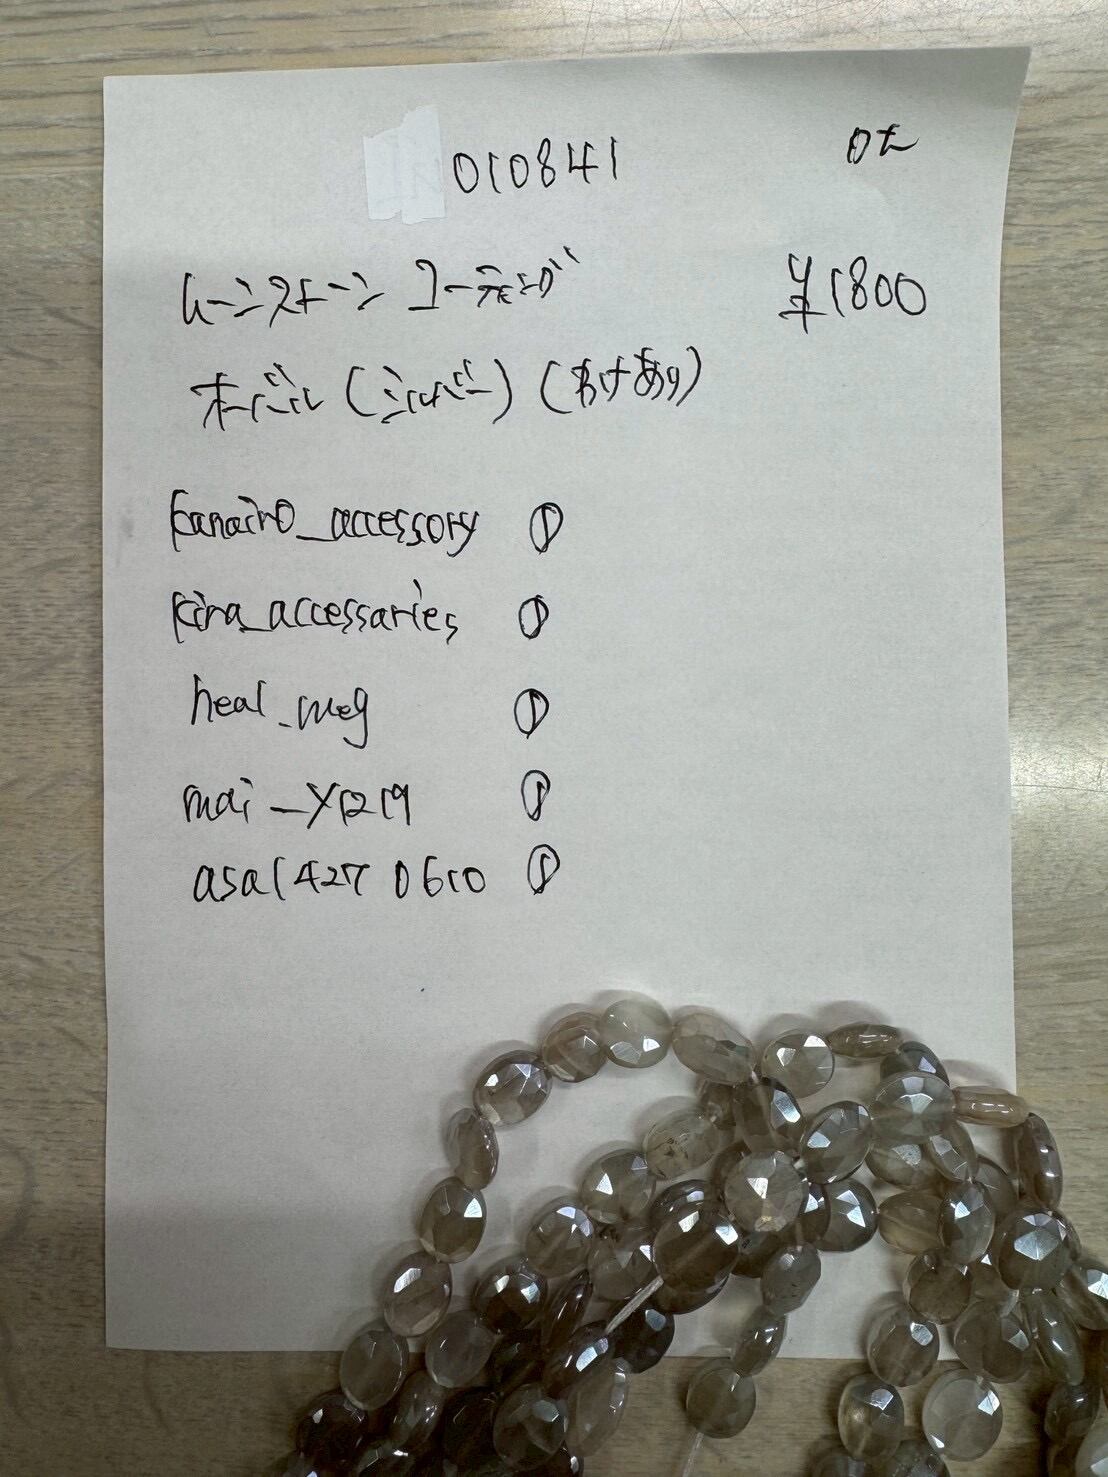 010841
ムーンストーン コーティング ¥1800
オーバル (シルバー) (わけあり)
kanairo_accessory ①
kira_accessaries ①
heal_meg ①
mai_y1219 ①
asa1427 0610 ①